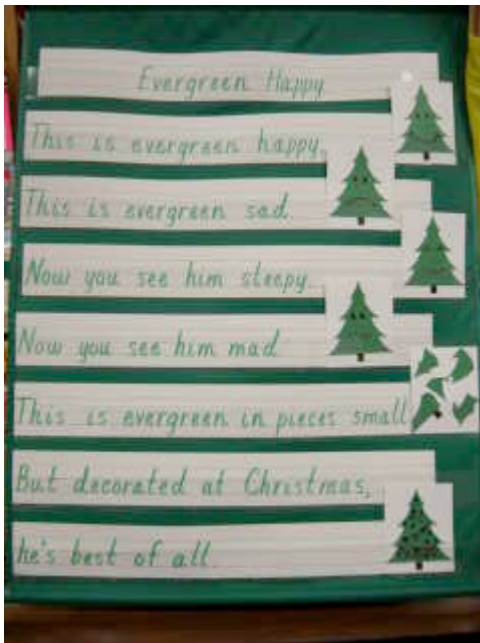 Evergreen Happy
This is evergreen happy.
This is evergreen sad.
Now you see him sleepy.
Now you see him mad.
This is evergreen in pieces small
But decorated at Christmas,
he's best of all.